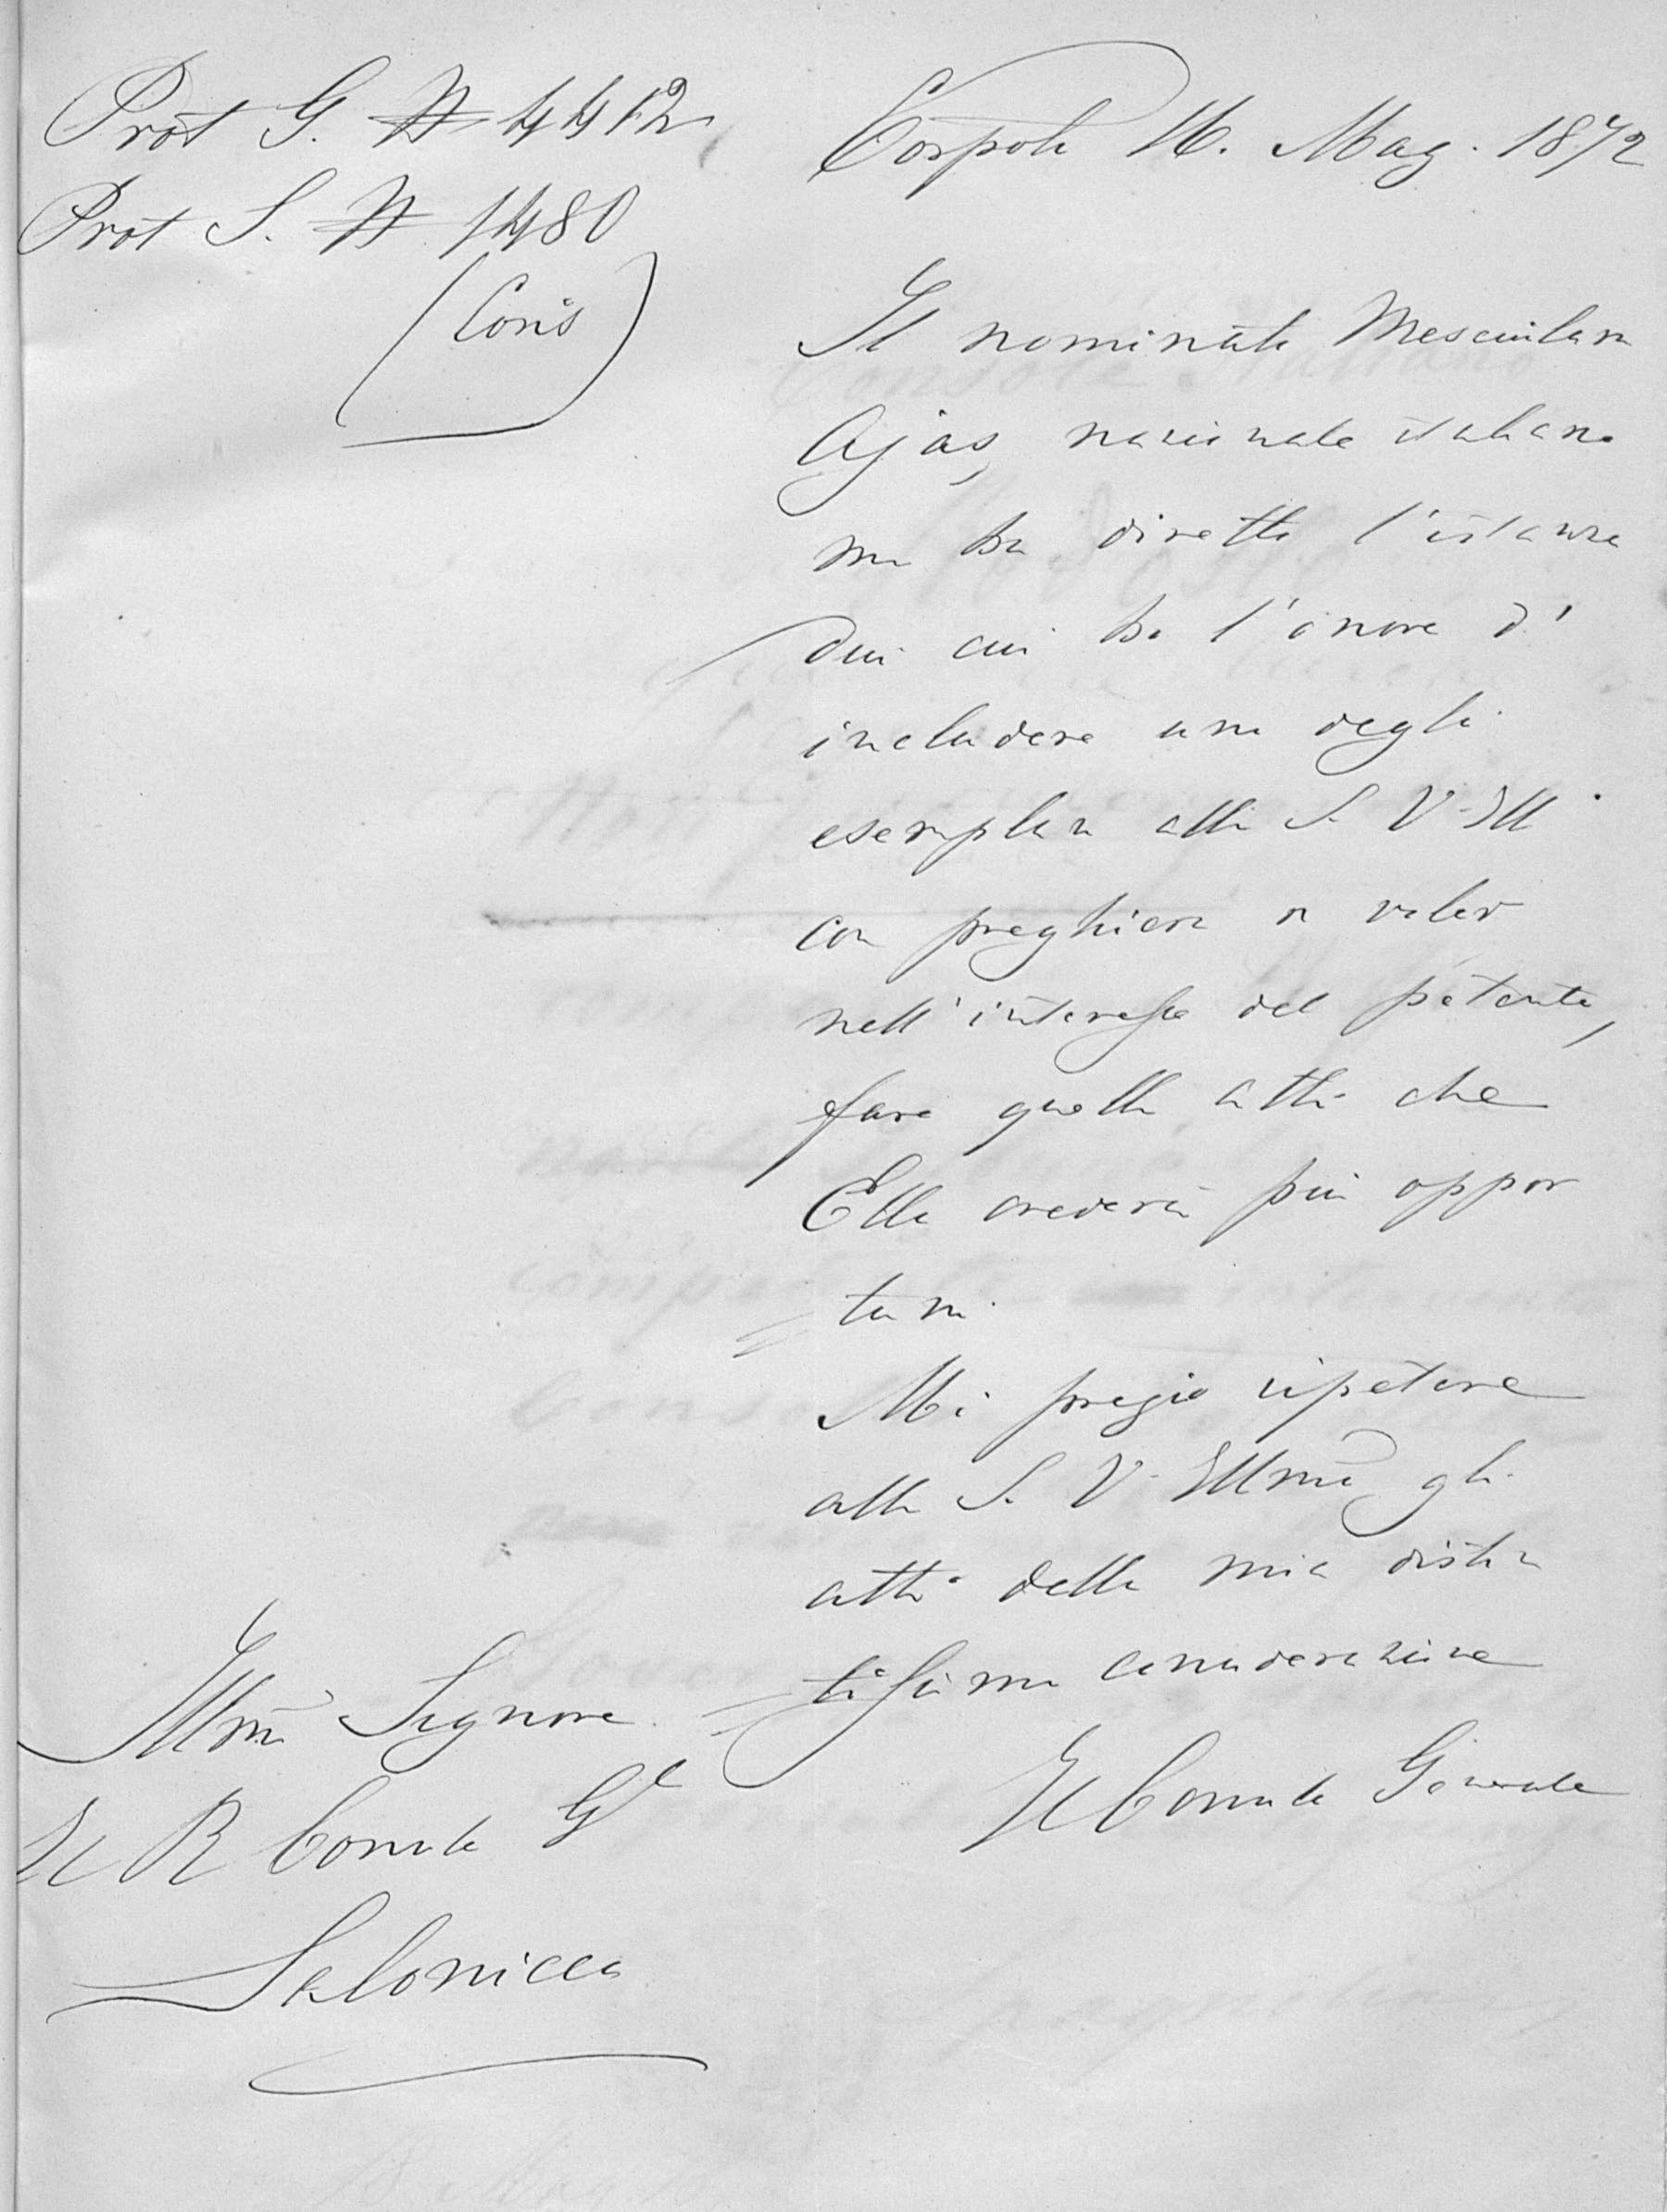 Prot G. N 4412
Prot S. N 1480
(Cons)
Cospoli 16. Mag. 1872
Il nominato
Ajas, nazionale italiano
mi ha diretto l'istanza
di cui ho l'onore d'
includere uno degli
esemplari alla S. V. Ill
con preghiera a voler
nell'interesse del petente,
fare quelli atti che
Ella crederà più oppor
tuni.
Mi pregio ripetere
alla S. V. Illma gli
atti della mia distin
tissima considerazione
Il Console Generale
Illmo Signore
Il R Console Gle
Salonicco